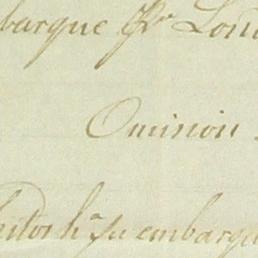 barque pr Lond
Omision
hitos ha su embarqu